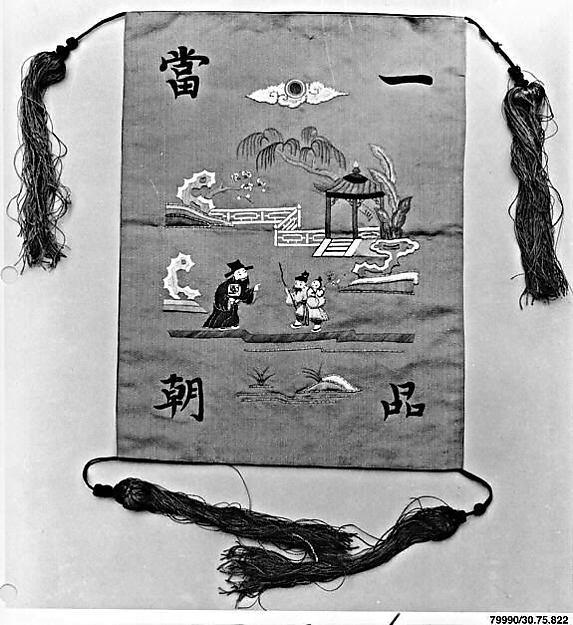 一品
當朝
79990/30.75.822